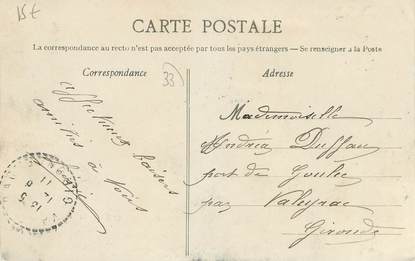 15€
CARTE POSTALE
La correspondance au recto n'est pas acceptée par tous les pays étrangers — Se renseigner à la Poste
Correspondance
33
Adresse
affectueux baisers
amitiés à vous
Mademoiselle
Andréa Duffau
port de Goulée
par Valeyrac
Gironde